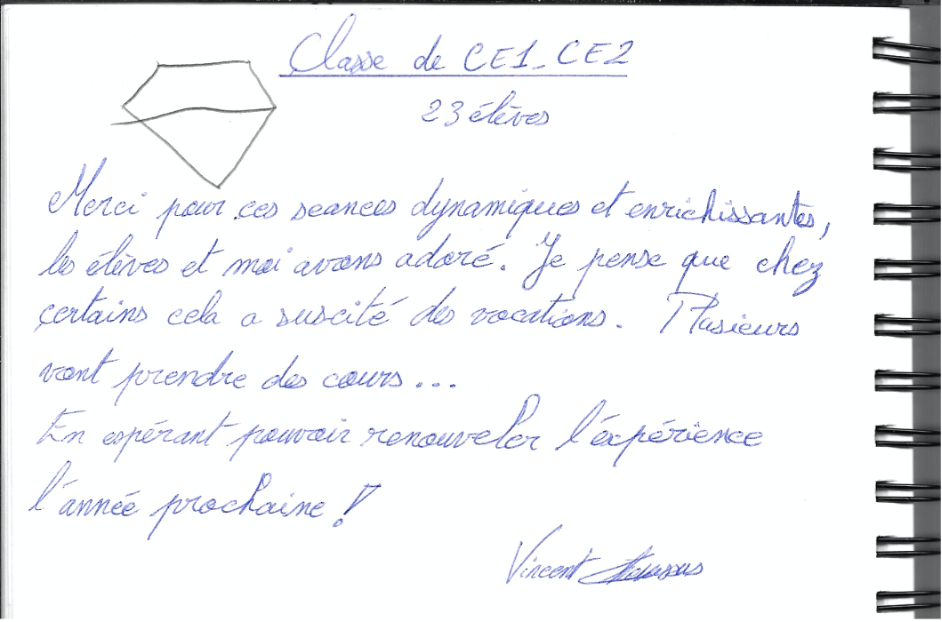 Classe de CE1_CE2
23 élèves
Merci pour ces seances dynamiques et enrichissantes,
les élèves et moi avons adoré. Je pense que chez
certains cela a suscité des vocations. Plusieurs
vont prendre des cours...
En espérant pouvoir renouveler l'expérience
l'année prochaine !
Vincent